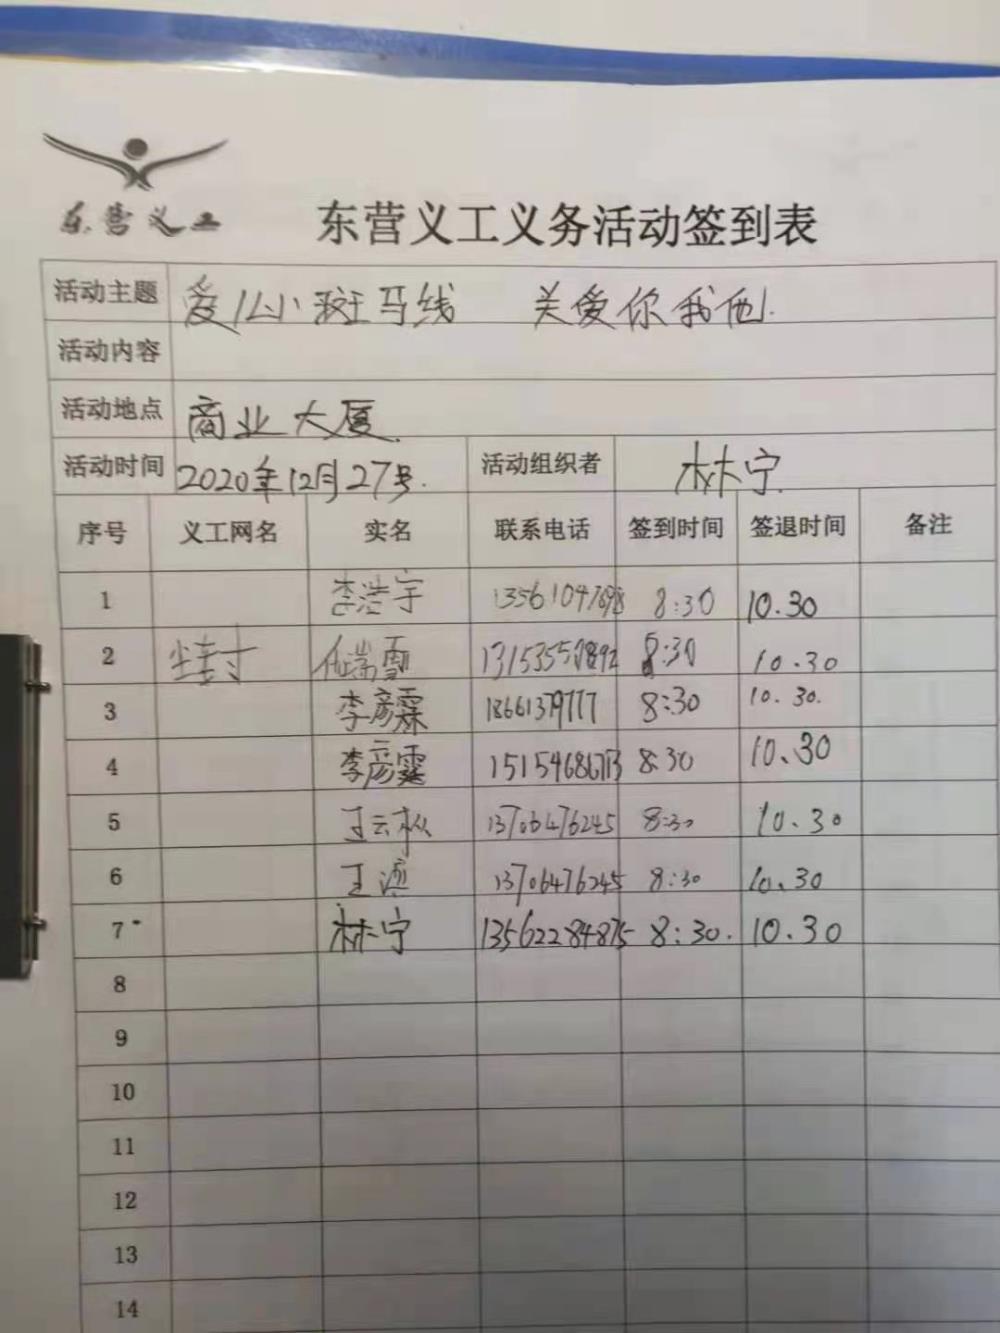 东营义工
东营义工义务活动签到表
活动主题 爱心小斑马线 关爱你我他.
活动内容
活动地点 商业大厦.
活动时间 2020年12月27号. 活动组织者 林宁
序号 义工网名 实名 联系电话 签到时间 签退时间 备注
1 李浩宇 13561047698 8:30 10.30
2 13153550892 8:30 10.30
3 李彦霖 18661379777 8:30 10.30.
4 李彦霆 15154686713 8:30 10.30
5 王云枞 13706476245 8:30 10.30
6 王 13706476245 8:30 10.30
7 林宁 13562284875 8:30. 10.30
8
9
10
11
12
13
14